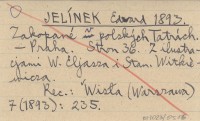 JELÍNEK Edward 1893.
Zakopané v polských Tatrách.
— Praha. Stron 36. Z ilustra-
cjami W. Eljasza i Stan. Witkie-
wicza.
Rec.: "Wisła (Warszawa)
7 (1893): 235.